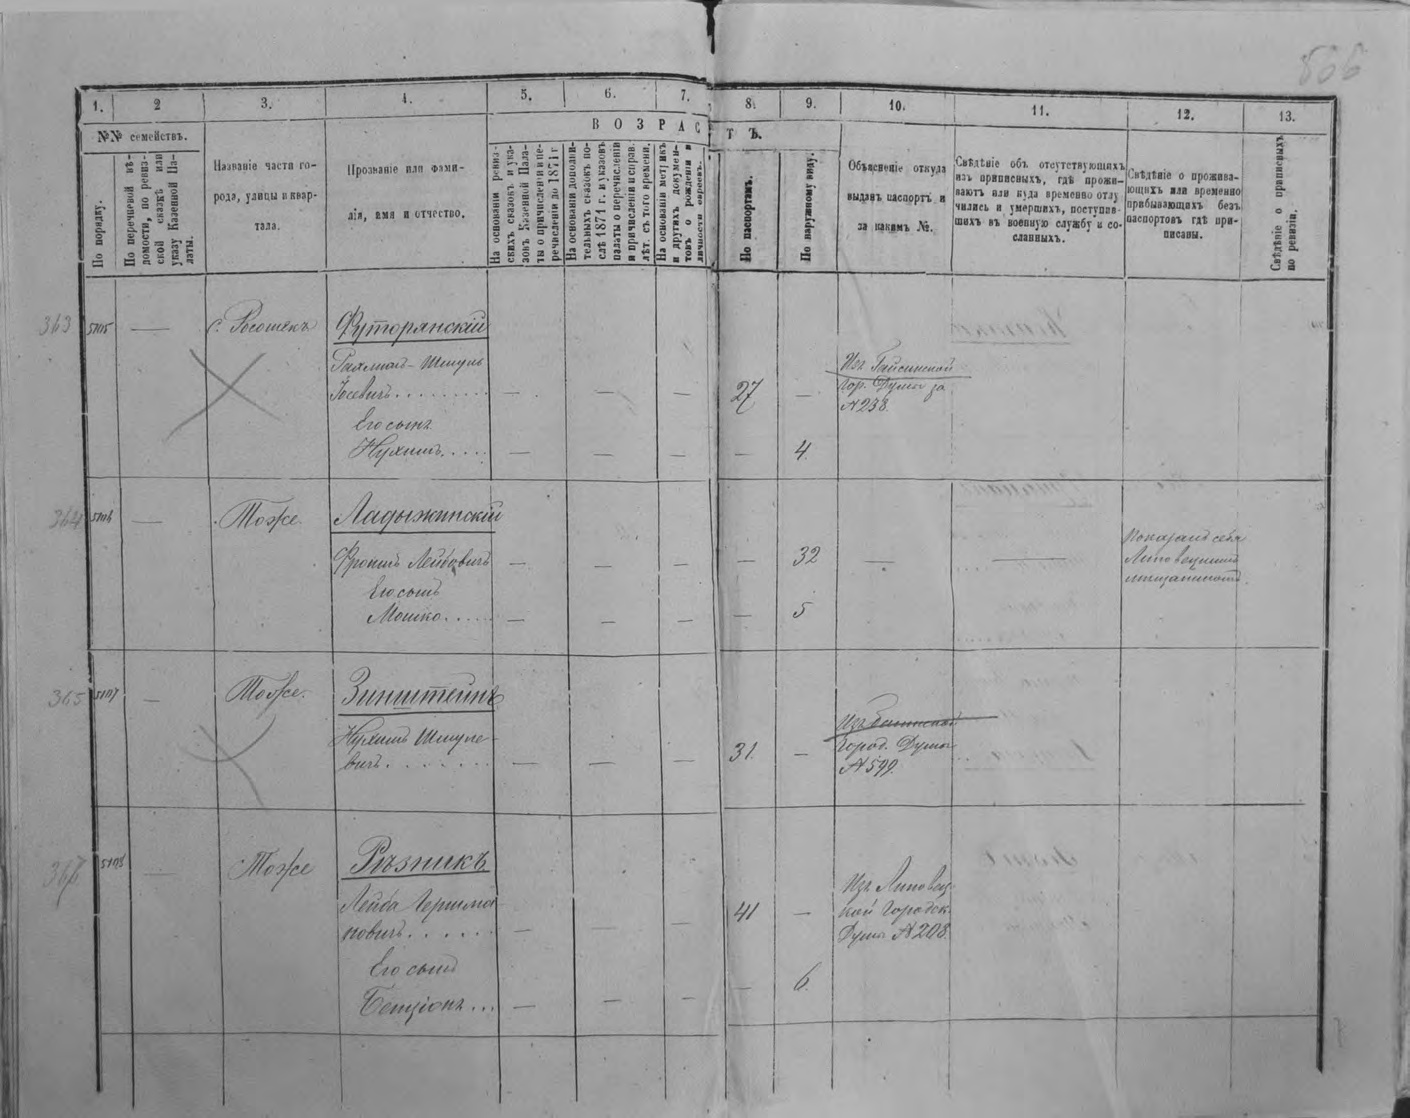 1.
2
3.
4.
5.
6.
7.
8.
9.
10.
11.
12.
13.
№№ семействъ.
По порядку.
По перечневой вѣ-
домости, по ревиз-
ской сказкѣ или
указу Казенной Па-
латы.
Названіе части го-
рода, улицы и квар-
тала.
Прозваніе или фами-
лія, имя и отчество.
ВОЗРАСТЪ.
На основаніи ревиз-
скихъ сказокъ и ука-
зовъ Казенной Пала-
ты о причисленіи и пе-
речисленіи до 1871 г
На основаніи дополни-
тельныхъ сказокъ по-
слѣ 1871 г. и указовъ
палаты о перечисленіи
и причисленіи и справ.
лѣт. съ того времени.
На основаніи метрикъ
и другихъ докумен-
товъ о рожденіи и
личности евреевъ.
По паспортамъ.
По наружному виду.
Объясненіе откуда
выданъ паспортъ и
за какимъ №.
Свѣдѣніе объ отсутствующихъ
изъ приписныхъ, гдѣ прожи-
ваютъ или куда временно отлу
чились и умершихъ, поступив-
шихъ въ военную службу и со-
сланныхъ.
Свѣдѣніе о прожива-
ющихъ или временно
прибывающихъ безъ
паспортовъ гдѣ при-
писаны.
Свѣдѣніе о приписныхъ
по ревизіи.
363
5105
с. Росошекъ
Футорянскій
Рахмиль-Шмуль
Іосевичъ
27
Изъ Гайсинской
Гор. Думы за
№ 238.
Его сынъ
Нухимъ
4
364
5106
Тоже.
Ладыжинскій
Фроимъ Лейбовичъ
32
Показалъ себя
Липовецкимъ
мещаниномъ
Его сынъ
Мошко
5
365
5107
Тоже.
Зинштейнъ
Нухимъ Шмуле-
вичъ
31.
Город. Думы
№ 599.
5108
Тоже
Рѣзникъ
Лейба
новичъ
41
Изъ Липовец-
кой Городск.
Думы № 208.
Его сынъ
Бенціонъ
6.